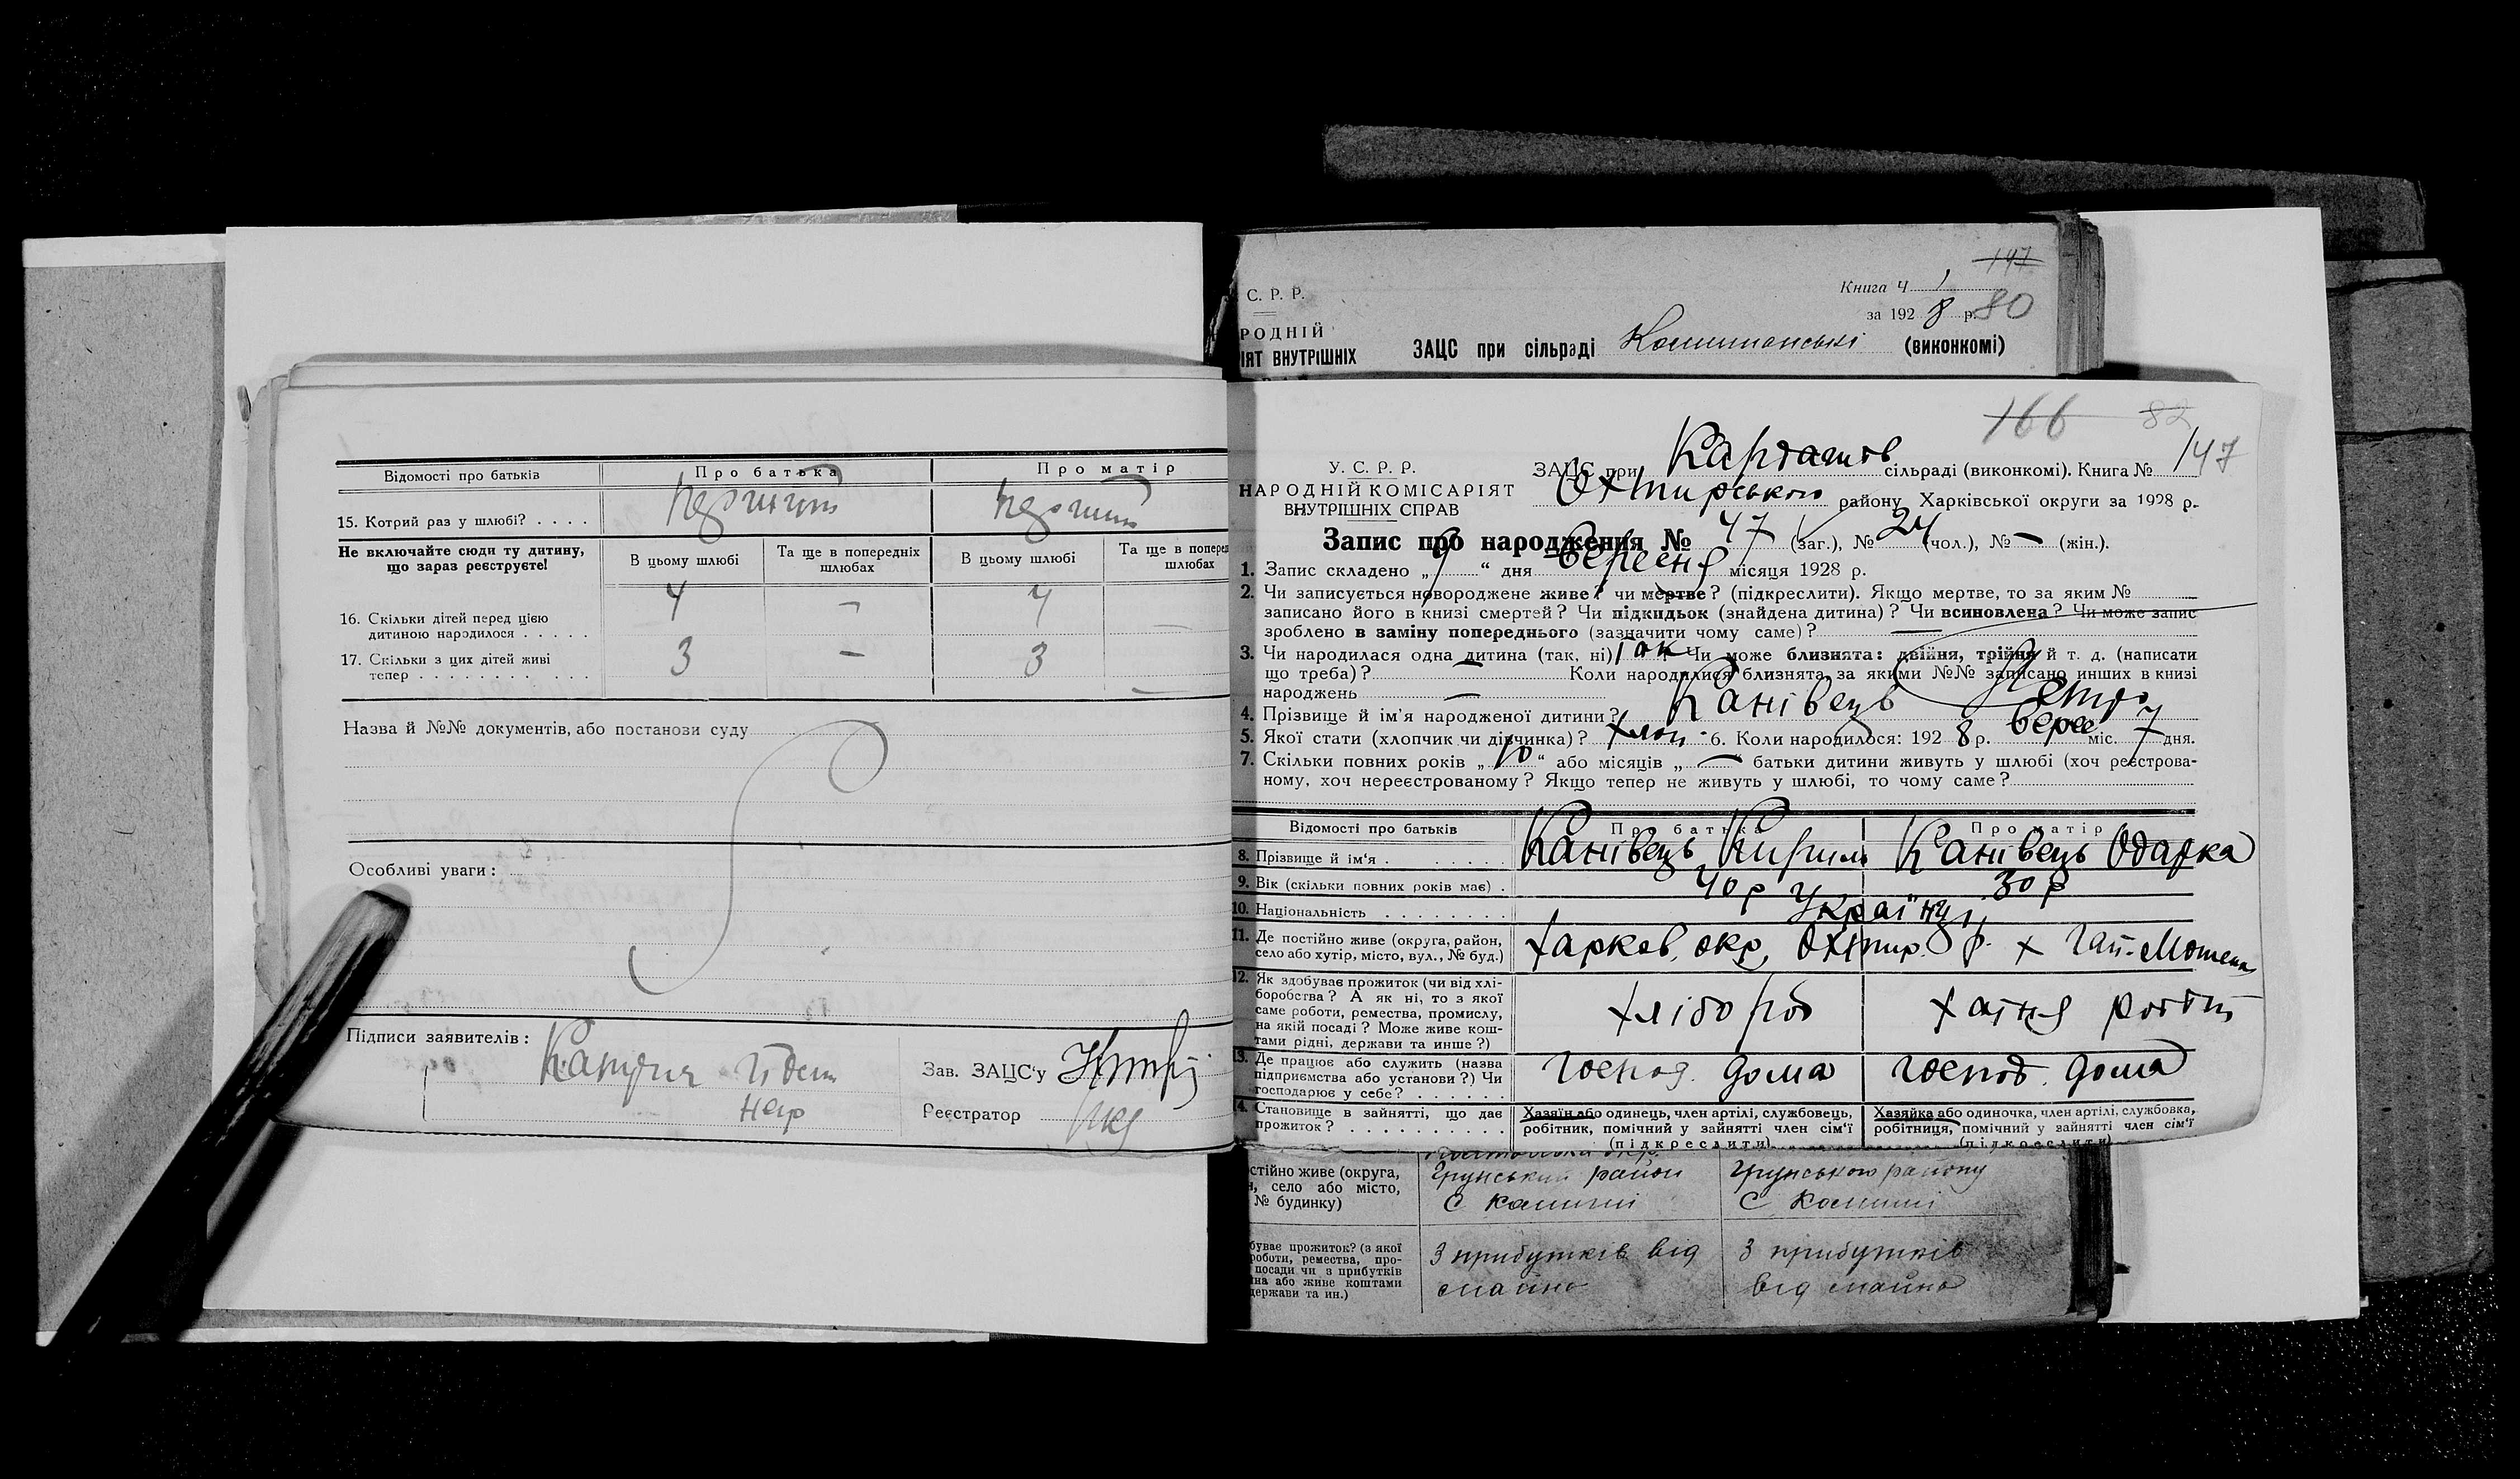 Відомості про батьків Про батька Про матір
15. Котрий раз у шлюбі? . . . .
Не включайте сюди ту дитину, що зараз реєструєте!
В цьому шлюбі Та ще в попередніх шлюбах В цьому шлюбі Та ще в поперед шлюбах
16. Скільки дітей перед цією
дитиною народилося . . . . . 4 — 4 —
17. Скільки з цих дітей живі
тепер . . . . . . . . . . . 3 — 3 —
Назва й №№ документів, або постанови суду
Особливі уваги:
Підписи заявителів:
Зав. ЗАЦС'у
Реєстратор
147
С. Р. Р. Книга Ч 1
за 1928 р. 80
РОДНІЙ
ІЯТ ВНУТРІШНІХ ЗАЦС при сільраді (виконкомі)
166 82
147
У. С. Р. Р. ЗАЦС при сільраді (виконкомі). Книга №
НАРОДНІЙ КОМІСАРІЯТ Охтирського району Харківської округи за 1928 р.
ВНУТРІШНІХ СПРАВ
Запис про народження № 47 (заг.), № 24 (чол.), № — (жін.).
1. Запис складено „9“ дня вересня місяця 1928 р.
2. Чи записується новороджене живе? чи мертве? (підкреслити). Якщо мертве, то за яким №
записано його в книзі смертей? Чи підкидьок (знайдена дитина)? Чи всиновлена? Чи може запис
зроблено в заміну попереднього (зазначити чому саме)? —
3. Чи народилася одна дитина (так, ні) так Чи може близнята: двійня, трійня й т. д. (написати
що треба)? — Коли народилися близнята, за якими №№ записано инших в книзі
народжень —
4. Прізвище й ім'я народженої дитини? Канівець Петро
5. Якої стати (хлопчик чи дівчинка)? хлоп. 6. Коли народилося: 1928 р. верес міс. 7 дня.
7. Скільки повних років „10“ або місяців „—“ батьки дитини живуть у шлюбі (хоч реєстрова-
ному, хоч нереєстрованому? Якщо тепер не живуть у шлюбі, то чому саме?
Відомості про батьків Про батька Про матір
8. Прізвище й ім'я . . . . . . Канівець Кирило Канівець Одарка
9. Вік (скільки повних років має) . 40 р 30 р
10. Національність . . . . . . . . Українці
11. Де постійно живе (округа, район,
село або хутір, місто, вул., № буд.) Харков. окр. Охтир. р. х Гай-Мошен
12. Як здобуває прожиток (чи від хлі-
боробства? А як ні, то з якої
саме роботи, ремества, промислу,
на якій посаді? Може живе кош-
тами рідні, держави та инше?) хлібороб хатня робот
13. Де працює або служить (назва
підприємства або установи?) Чи
господарює у себе? . . . . . . господ. дома господ. дома
14. Становище в зайнятті, що дає
прожиток? . . . . . . . . . .
Хазяїн або одинець, член артілі, службовець,
робітник, помічний у зайнятті член сім'ї
(підкреслити)
Хазяйка або одиночка, член артілі, службовка,
робітниця, помічний у зайнятті член сім'ї
(підкреслити)
стійно живе (округа, Грунський район Грунського району
н, село або місто,
№ будинку)
буває прожиток? (з якої
роботи, ремества, про-
посади чи з прибутків
на або живе коштами
держави та ин.)
З прибутків від майна
З прибутків від майна